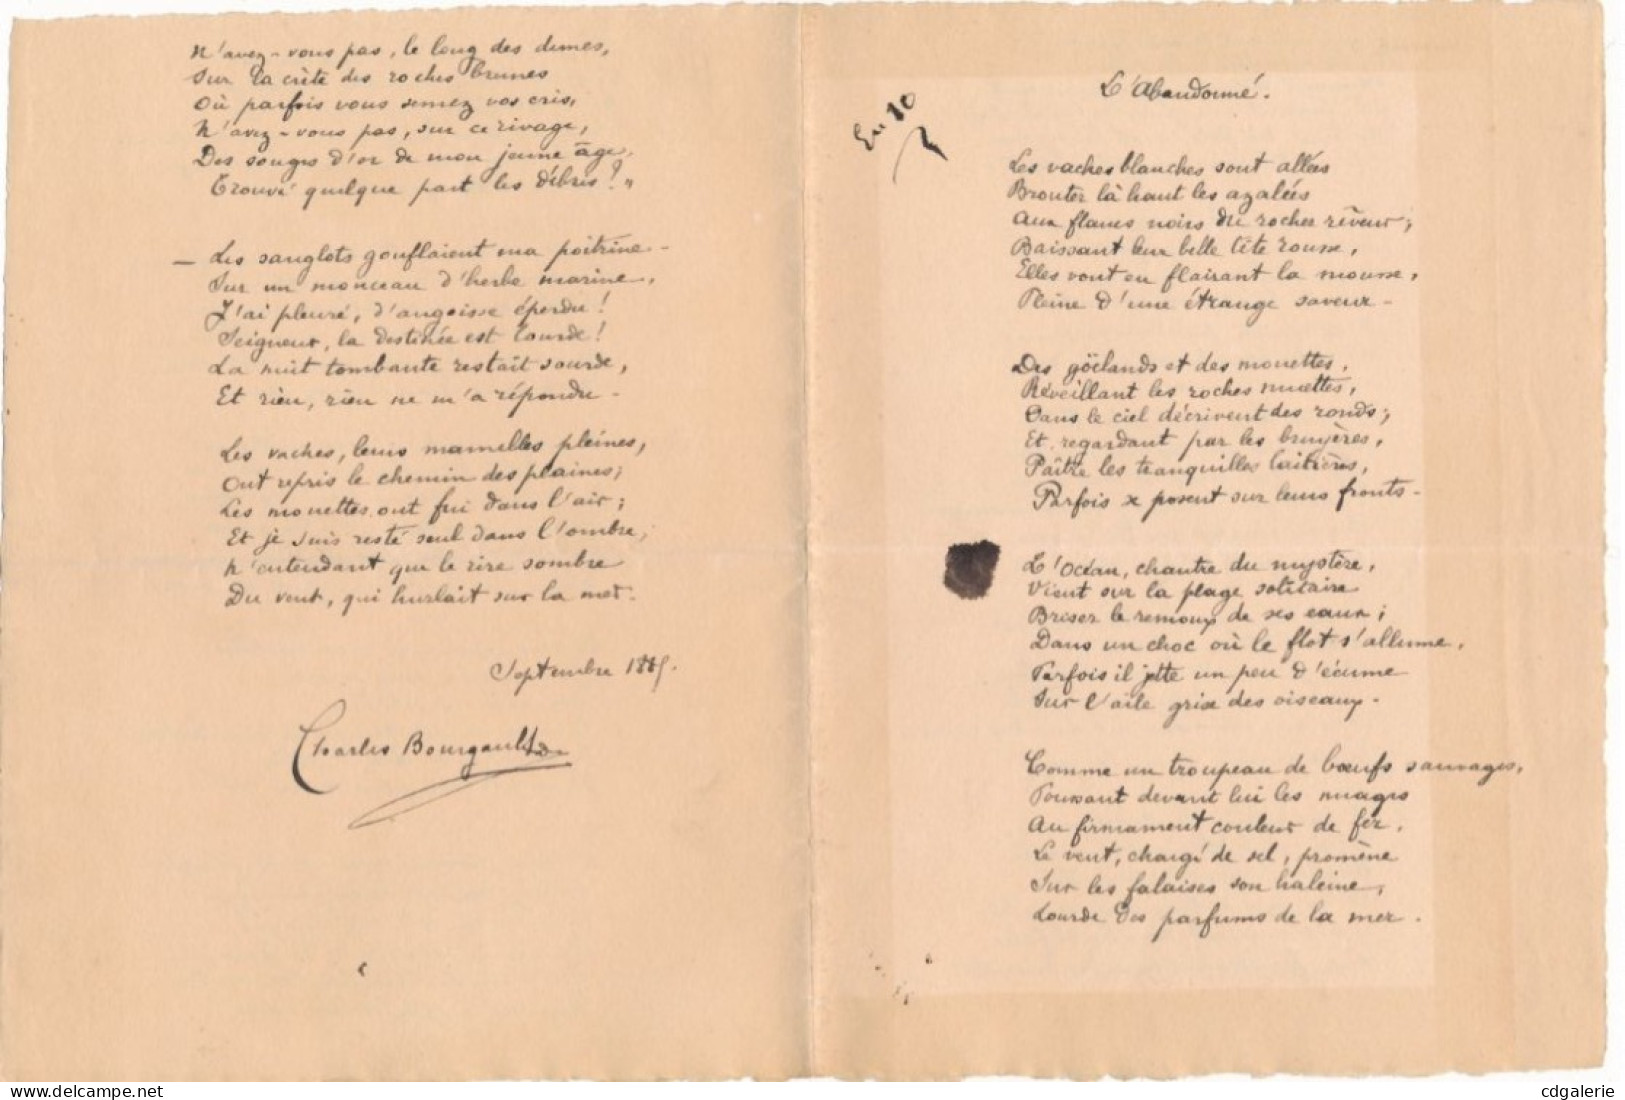 N'avez-vous pas, le long des dunes,
Sur la crète des roches brunes
Où parfois vous semez vos cris,
N'avez-vous pas, sur ce rivage,
Des songes d'or de mon jeune âge,
Trouvé quelque part les débris? "

— Les sanglots gonflaient ma poitrine -
Sur un monceau d'herbe marine,
J'ai pleuré, d'angoisse éperdu!
Seigneur, la destinée est lourde!
La nuit tombante restait sourde,
Et rien, rien ne m'a répondu -

Les vaches, leurs mamelles pleines,
Ont repris le chemin des plaines;
Les mouettes ont fui dans l'air;
Et je suis resté seul dans l'ombre,
N'entendant que le rire sombre
Du vent, qui hurlait sur la mer.

Septembre 188
Charles Bourgault

L'Abandonné.
En 10

Les vaches blanches sont allées
Brouter là haut les azalées
Aux flancs noirs du rocher rêveur;
Baissant leur belle tête rousse,
Elles vont en flairant la mousse,
Pleine d'une étrange saveur -

Des goëlands et des mouettes,
Réveillant les roches muettes,
Dans le ciel décrivent des ronds;
Et, regardant par les bruyères,
Paître les tranquilles laitières,
Parfois se posent sur leurs fronts -

L'Océan, chantre du mystère,
Vient sur la plage solitaire
Briser le remoux de ses eaux;
Dans un choc où le flot s'allume,
Parfois il jette un peu d'écume
Sur l'aile grise des oiseaux -

Comme un troupeau de bœufs sauvages,
Poussant devant lui les nuages
Au firmament couleur de fer,
Le vent, chargé de sel, promène
Sur les falaises son haleine,
Lourde des parfums de la mer.

www.delcampe.net
cdgalerie